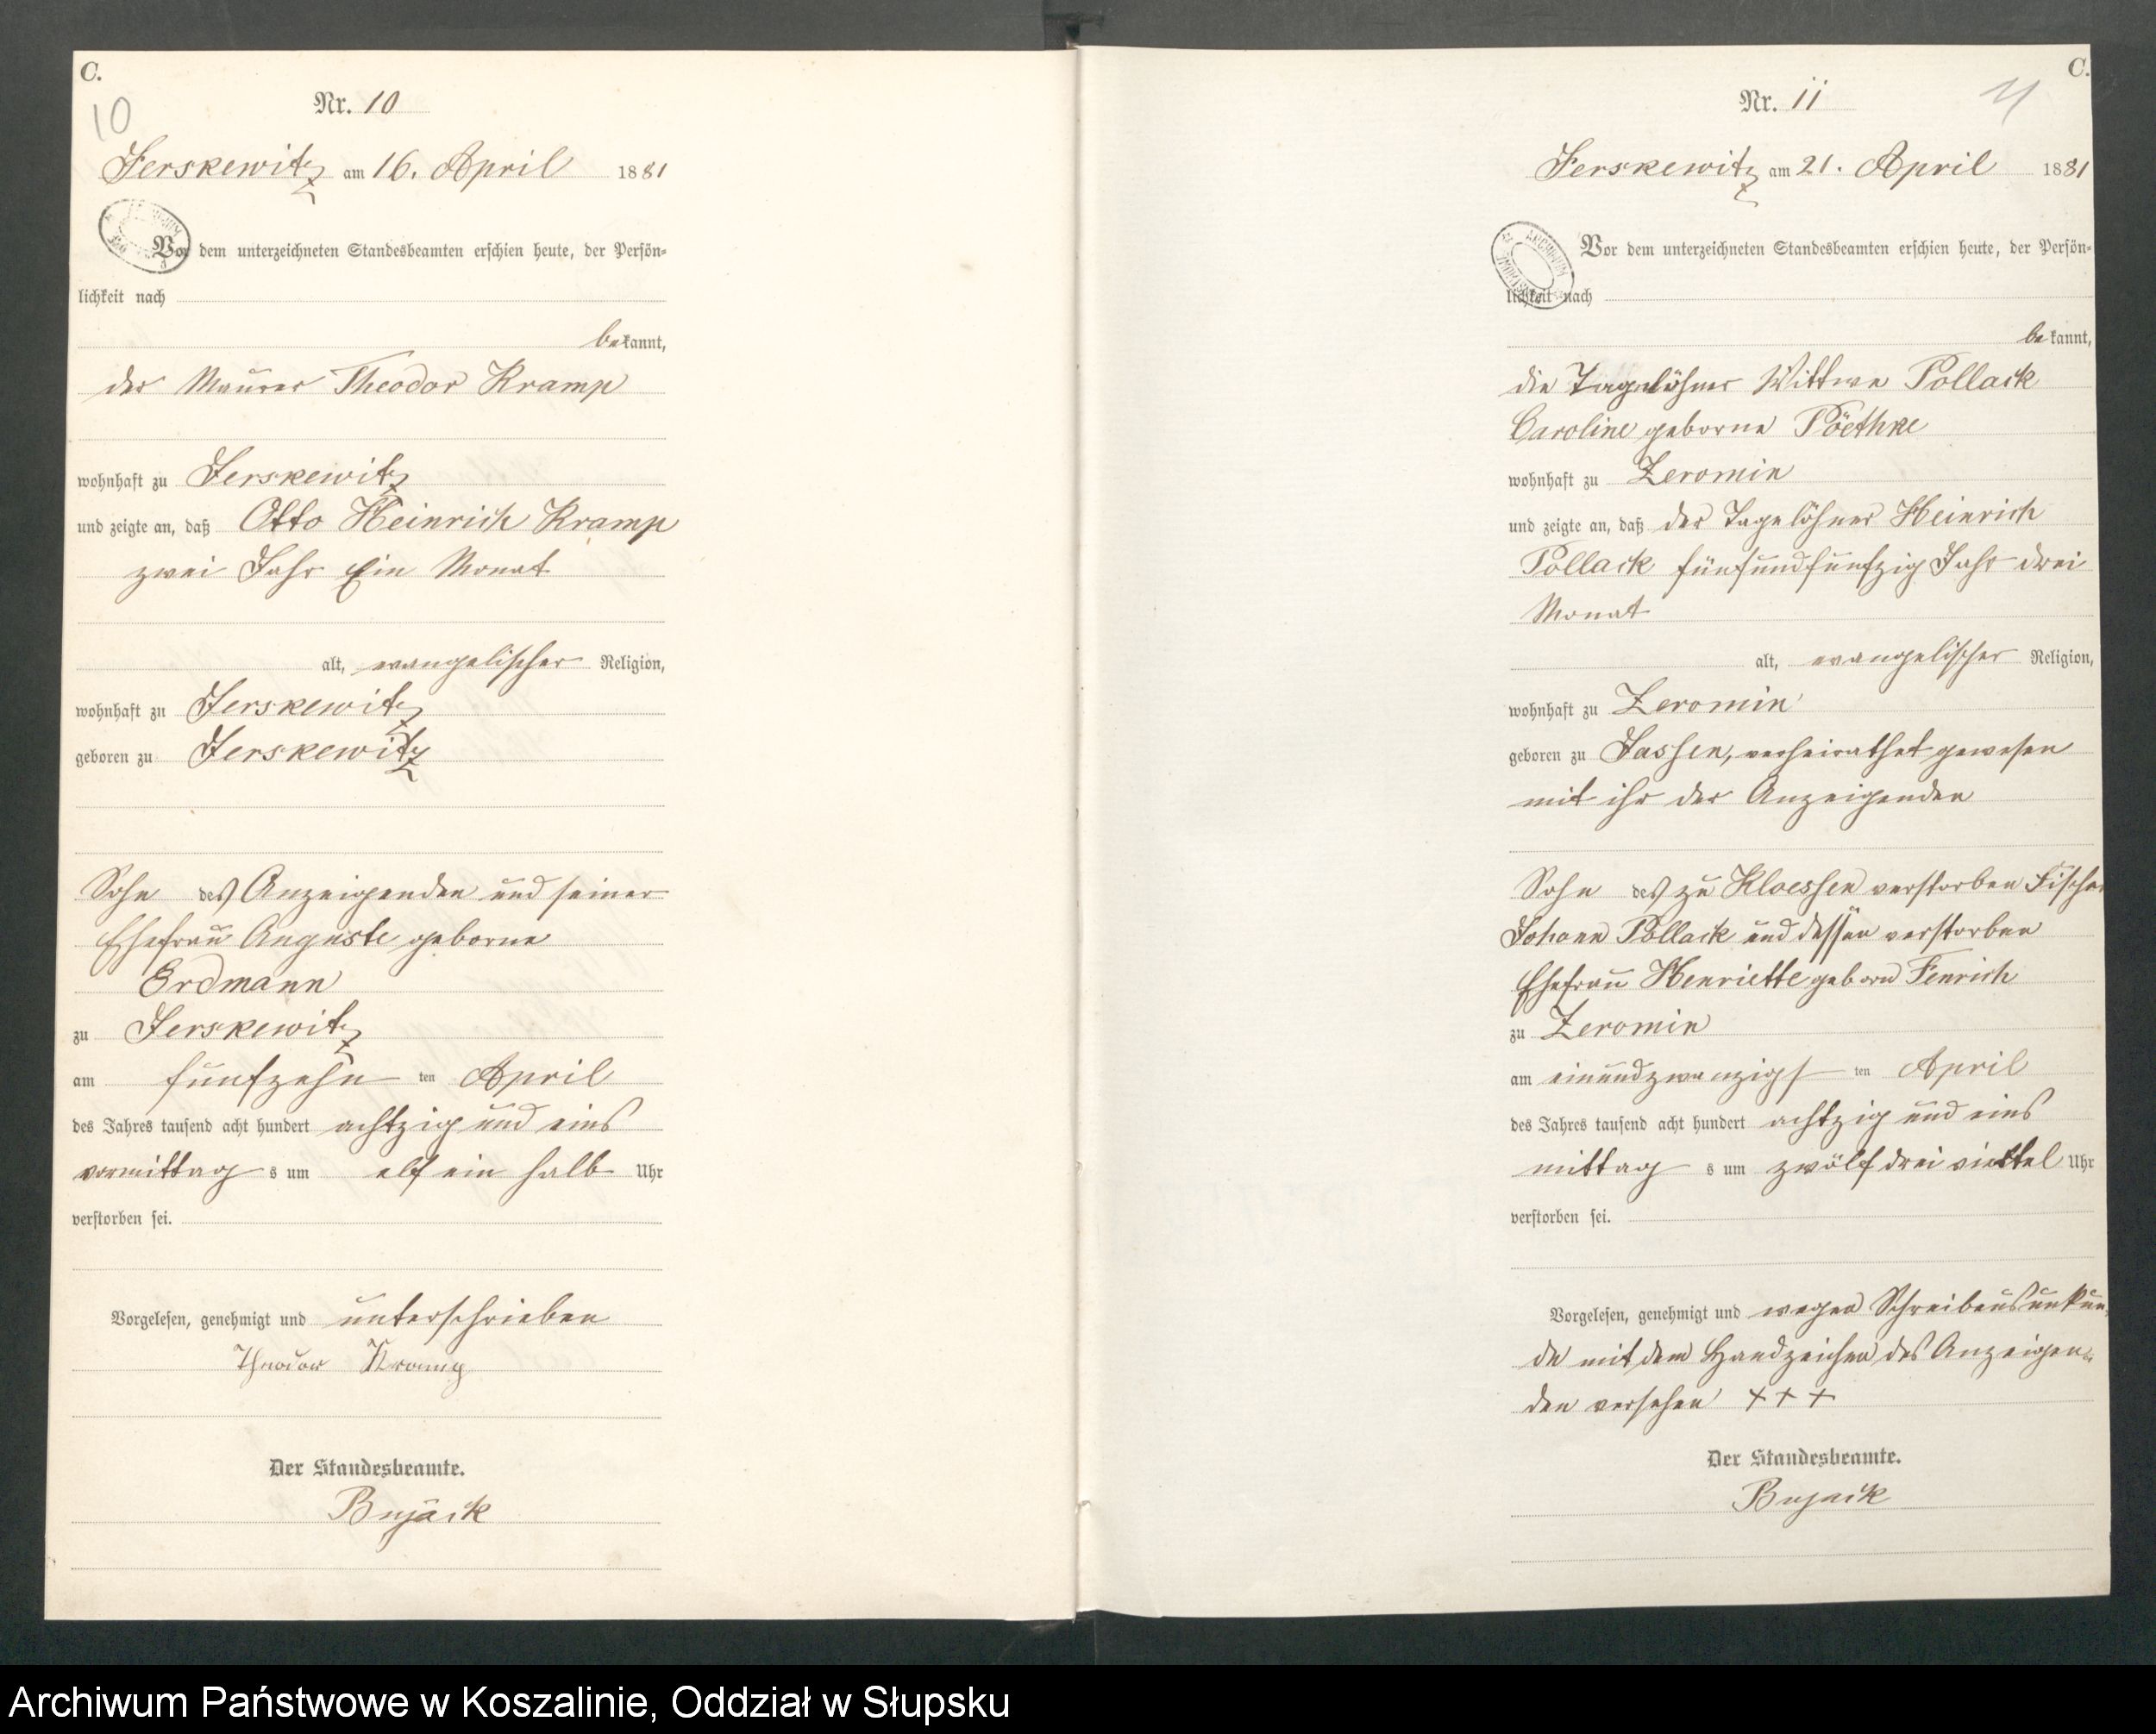 C.
10
Nr. 10
Jerskewitz am 16. April 1881
Vor dem unterzeichneten Standesbeamten erschien heute, der Persön-
lichkeit nach
bekannt,
der Maurer Theodor Kramp
wohnhaft zu Jerskewitz
und zeigte an, daß Otto Heinrich Kramp
zwei Jahr Ein Monat
alt, evangelischer Religion,
wohnhaft zu Jerskewitz
geboren zu Jerskewitz
Sohn des Anzeigenden und seiner
Ehefrau Auguste geborne
Erdmann
zu Jerskewitz
am funfzehn ten April
des Jahres tausend acht hundert achtzig und eins
vormittag s um elf ein halb Uhr
verstorben sei.
Vorgelesen, genehmigt und unterschrieben
Theodor Kramp
Der Standesbeamte.
Bujack
C.
11
Nr. 11
Jerskewitz am 21. April 1881
Vor dem unterzeichneten Standesbeamten erschien heute, der Persön-
lichkeit nach
bekannt,
die Tagelöhner Wittwe Pollack
Caroline geborne Pöethke
wohnhaft zu Zeromin
und zeigte an, daß der Tagelöhner Heinrich
Pollack fünfundfunfzig Jahr drei
Monat
alt, evangelischer Religion,
wohnhaft zu Zeromin
geboren zu Jassen, verheirathet gewesen
mit ihr der Anzeigenden
Sohn des zu Kloessen verstorben Fischer
Johann Pollack und dessen verstorben
Ehefrau Henriette geborn Fenrich
zu Zeromin
am einundzwanzigs ten April
des Jahres tausend acht hundert achtzig und eins
mittag s um zwölf drei viertel Uhr
verstorben sei.
Vorgelesen, genehmigt und wegen Schreibensunkun-
de mit dem Handzeichen des Anzeigen-
den versehen + + +
Der Standesbeamte.
Bujack
Archiwum Państwowe w Koszalinie, Oddział w Słupsku